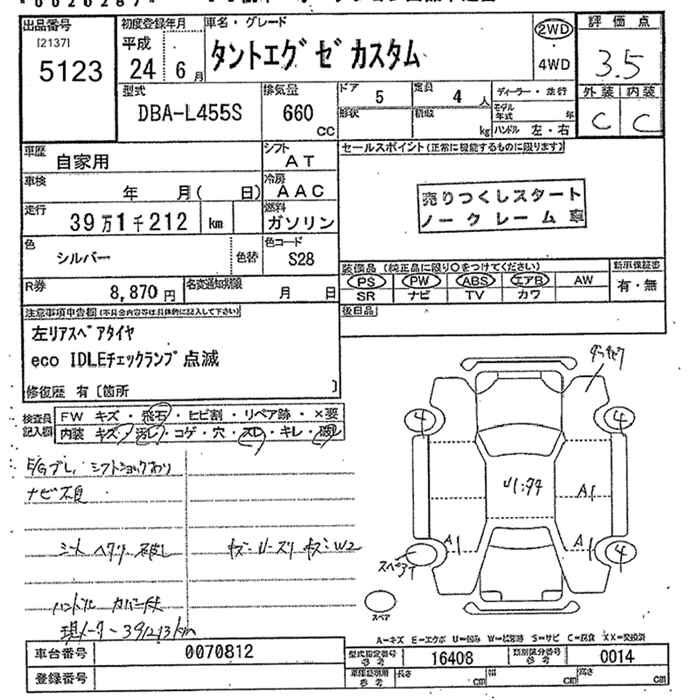 出品番号
[2137]
5123
初度登録年月
平成
24 年 6 月
車名・グレード
タントエグゼカスタム
2WD
・
4WD
評価点
3.5
外装 内装
C C
型式
DBA-L455S
排気量
660
CC
ドア
5
定員
4 人
形状
積載
kg
ディーラー・並行
モデル年式 年
ハンドル 左・右
車歴
自家用
シフト
AT
セールスポイント(正常に機能するものに限ります)
車検
年 月( 日)
冷房
AAC
売りつくしスタート
ノークレーム車
走行
39万1千212 km
燃料
ガソリン
色
シルバー
色替
色コード
S28
装備品(純正品に限り○をつけてください)
PS PW ABS エアB AW
SR ナビ TV カワ
新車保証書
有・無
R券
8,870 円
名変通知期限
月 日
後日品
注意事項申告欄(不具合内容等は具体的に記入して下さい)
左リアスペアタイヤ
eco IDLEチェックランプ点滅
修復歴 有〔箇所 〕
検査員記入欄
FW キズ・飛石・ヒビ割・リペア跡・×要
内装 キズ・汚レ・コゲ・穴・スレ・キレ・破レ
E/Gブレ, シフトショックあり
ナビ不良
シート ヘタリ 破レ
ハンドル カバー付
現メーター391213km
4 4
A1
A1 A1
スペア 4
スペア
A=キズ E=エクボ U=凹み W=補修跡 S=サビ C=腐食 XX=交換済
車台番号
0070812
登録番号
型式指定番号
参考
16408
類別区分番号
参考
0014
車庫証明用
参考
長さ cm
幅 cm
高さ cm